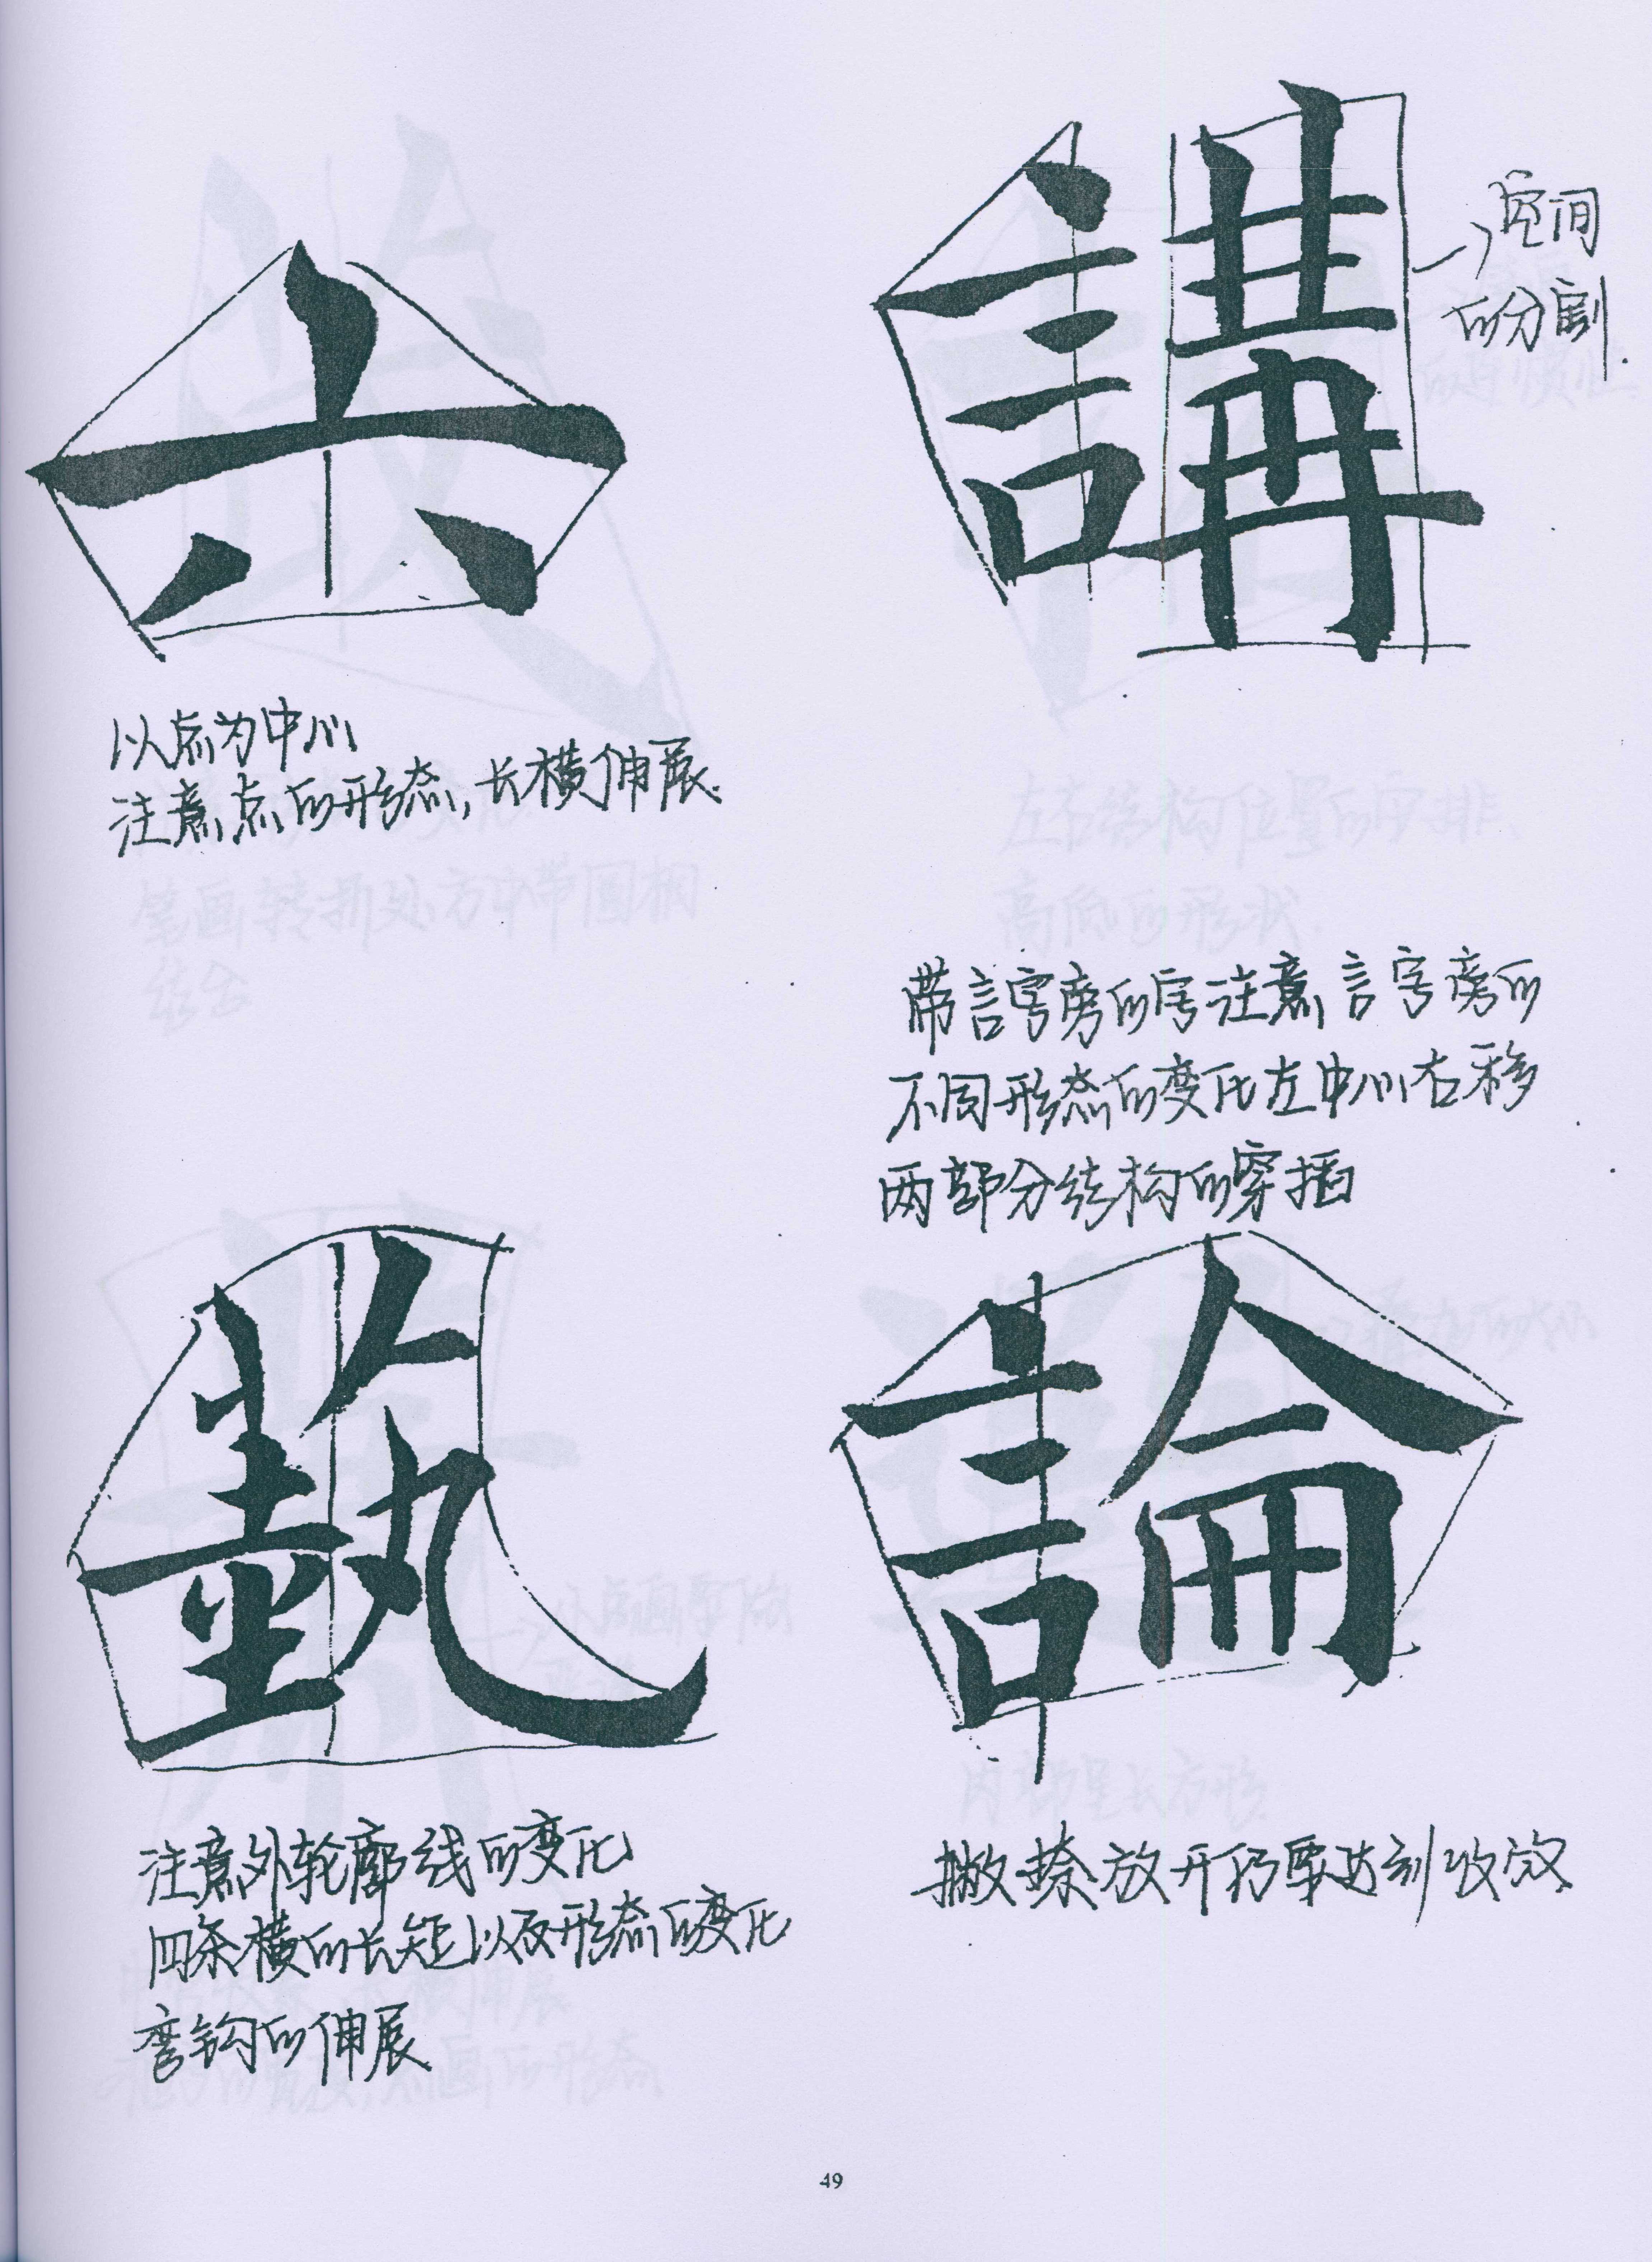 六
以点为中心
注意点的形态,长横伸展.
講
空间
的分割.
带言字旁的字注意言字旁的
不同形态的变化左中心右移
两部分结构的穿插
藝
注意外轮廓线的变化
四条横的长短以及形态的变化
弯钩的伸展
論
撇捺放开仍要达到收放
49